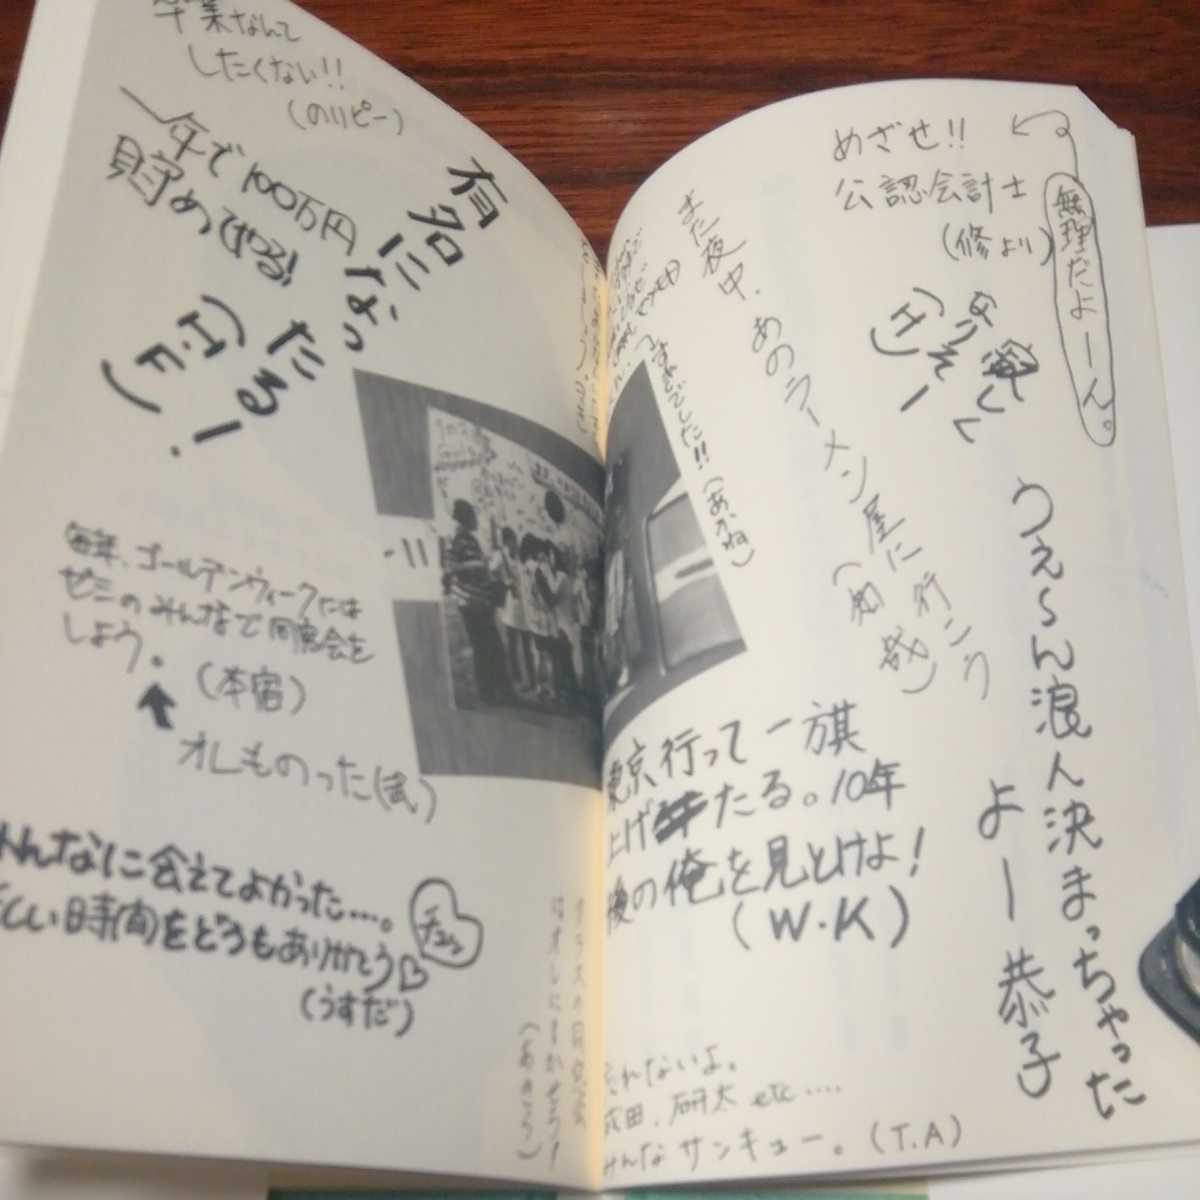 卒業なんて
したくない!!
(のりピー)
一年で100万円
貯めてやる!
(F・I)
有名になっ
たる!
毎年、ゴールデンウィークには
ゼミのみんなで同窓会を
しよう。
(本宿)
オレものった(武)
みんなに会えてよかった….
しい時間をどうもありがとう♡
(うすだ)
チュッ
クラスの同窓会
はオレにまかせろ!
めざせ!!
公認会計士
(修より)
無理だよーん。
寂しく
なりそー
(エリ)
また夜中、あのラーメン屋に行こう
(あかね)
うぇ〜ん浪人決まっちゃった
よー 恭子
東京行って一旗
上げたる。10年
後の俺を見とけよ!
(W・K)
忘れないよ。
成田、研太 etc….
みんなサンキュー。(T.A)